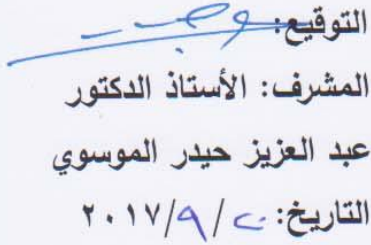 التوقيع:
المشرف: الأستاذ الدكتور
عبد العزيز حيدر الموسوي
التاريخ: ٢٠١٧/٩/